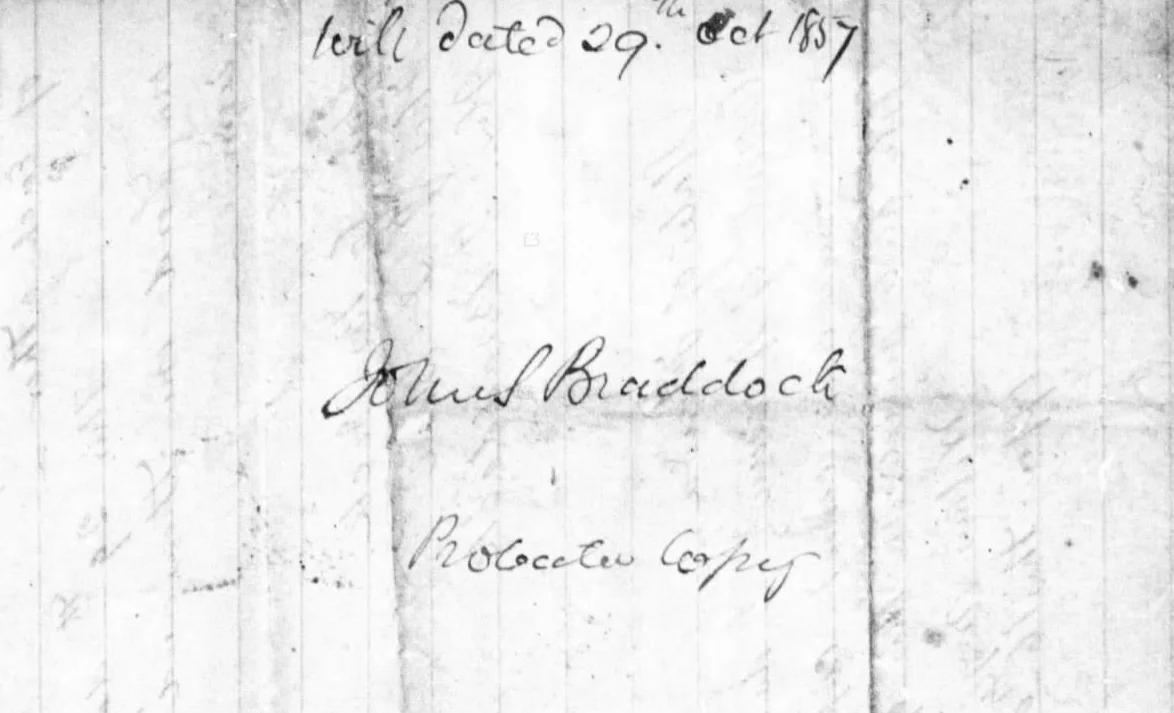 Will dated 29.th Oct 1857
John S Braddock
Probate Copy